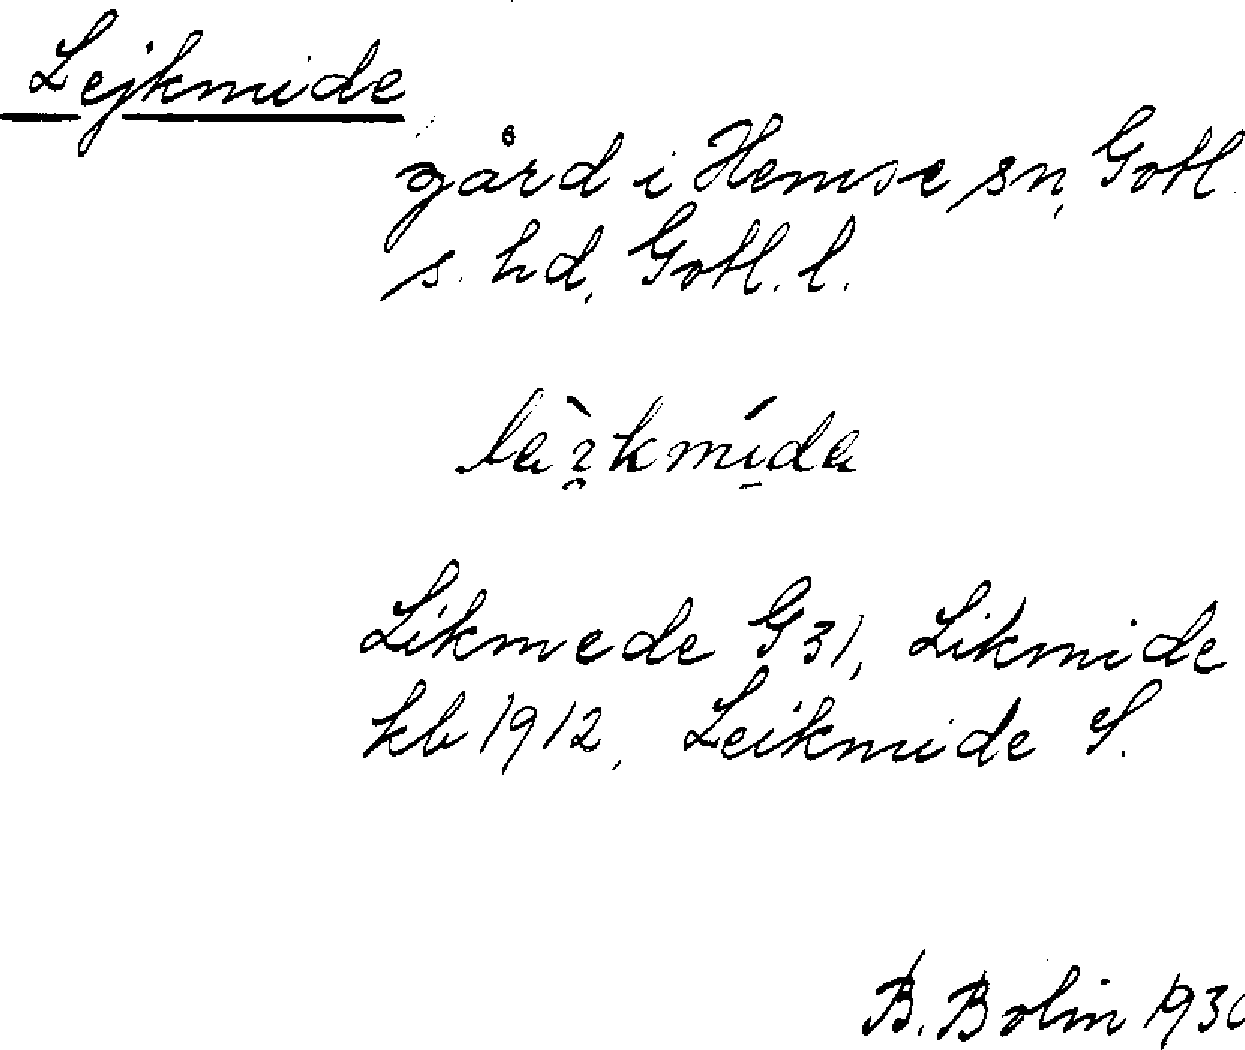 Lejkmide
gård i Hemse sn, Gotl.
s. hd, Gotl. l.
Likmede G 31, Likmide
kb 1912, Leikmide S.
B. Bolin 193